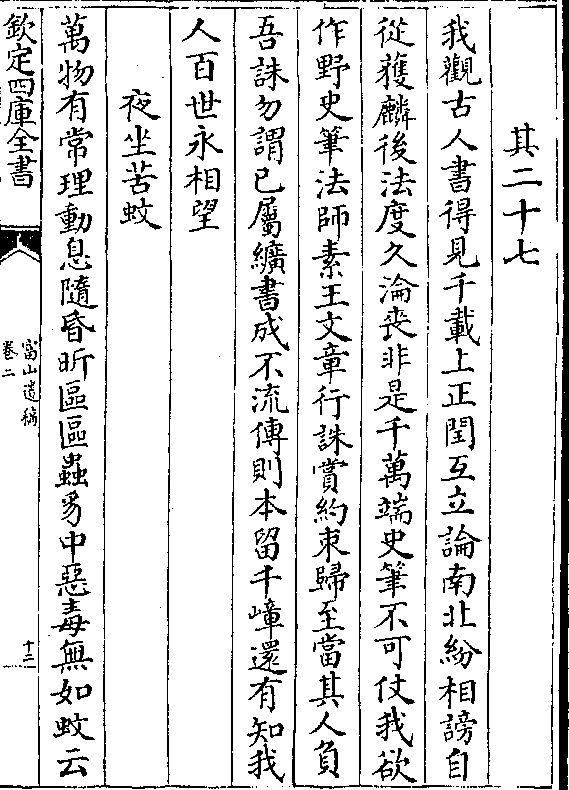 其二十七
我觀古人書得見千載上正閏互立論南北紛相謗自
從獲麟後法度久淪喪非是千萬端史筆不可仗我欲
作野史筆法師素王文章行誅賞約束歸至當其人負
吾誅勿謂已屬纊書成不流傳則本留千嶂還有知我
人百世永相望
夜坐苦蚊
萬物有常理動息隨昏昕區區蟲豸中惡毒無如蚊云
欽定四庫全書
富山遺稿
卷二
十三